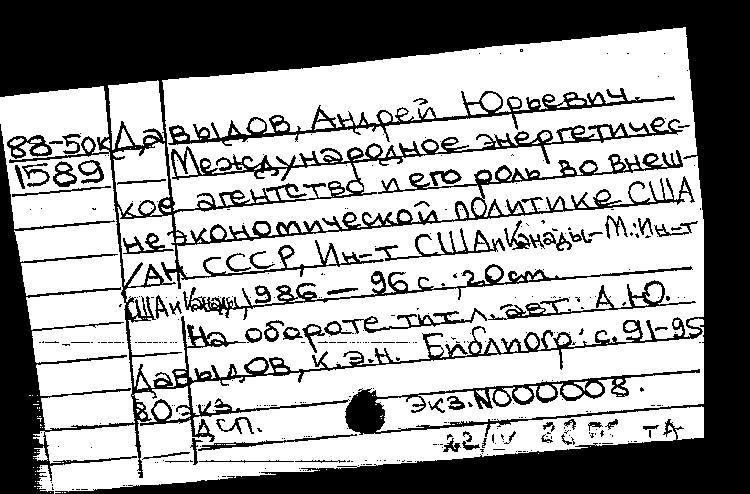 88-50к Давыдов, Андрей Юрьевич.
1589 Международное энергетичес-
кое агентство и его роль во внеш-
неэкономической политике США
/АН СССР, Ин-т США и Канады.-М.: Ин-т
США и Канады, 1986. — 96 с.; 20 см.
На обороте тит. л. авт.: А.Ю.
Давыдов, к.э.н. Библиогр.: с. 91-95
80 экз. Экз. N000008.
ДСП.
22/IV ТА